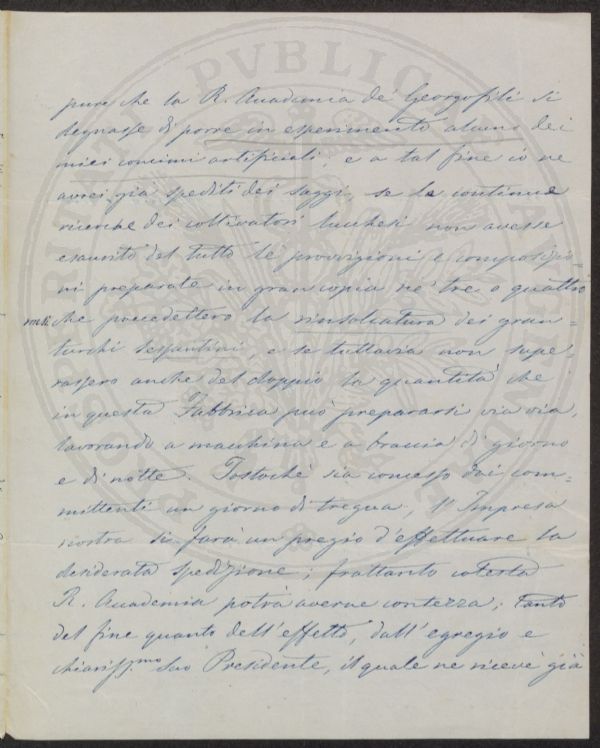 pure che la R. Accademia de' Georgofili si
degnasse di porre in esperimento alcuno dei
miei concimi artificiali e a tal fine io ne
avrei già spediti dei saggi, se le continue
ricerche dei coltivatori lucchesi non avesse
esaurito del tutto le provvigioni e composizio=
ni preparate in gran copia ne' tre o quattro
mesi che precedettero la rinsolcatura dei gran=
turchi sessantini, e se tuttavia non supe=
rassero anche del doppio la quantità che
in questa Fabbrica può prepararsi via via,
lavorando a macchina e a braccia di giorno
e di notte. Tostochè sia concesso dai com=
mittenti un giorno di tregua, l'Impresa
nostra si farà un pregio d'effettuare la
desiderata spedizione; frattanto cotesta
R. Accademia potrà averne contezza, tanto
del fine quanto dell'effetto, dall'egregio e
chiariss.mo Suo Presidente, il quale ne riceve già
PVBLICAE
PROSPERITATI
AVGENDAE